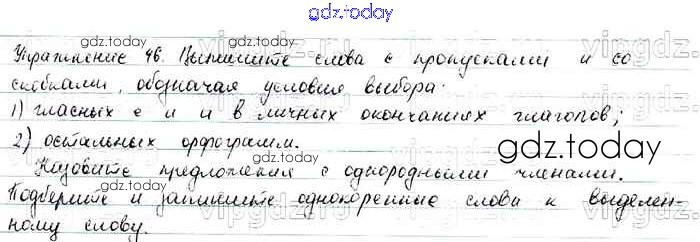 gdz.today
Упражнение 46. Выпишите слова с пропусками и со
скобками, обозначая условия выбора:
1) гласных е и и в личных окончаниях глаголов;
2) остальных орфограмм.
Назовите предложения с однородными членами.
Подберите и запишите однокоренные слова к выделен-
ному слову.
gdz.today
gdz.today
gdz.today
gdz.today
gdz.today
gdz.today